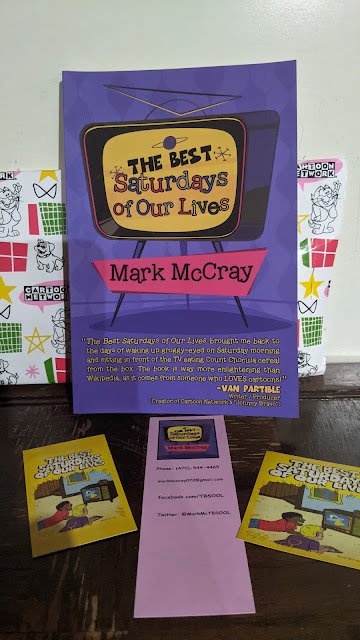 THE BEST
Saturdays
of Our Lives
Mark McCray
"The Best Saturdays of Our Lives brought me back to
the days of waking up groggy-eyed on Saturday morning
and sitting in front of the TV eating Count Chocula cereal
from the box. The book is way more enlightening than
Wikipedia, as it comes from someone who LOVES cartoons!"
-VAN PARTIBLE
Writer / Producer
(Creator of Cartoon Network's "Johnny Bravo")
CARTOON
NETWORK
CARTOON
NETWORK
THE BEST
Saturdays
of Our Lives
Mark McCray
facebook.com/TBSOOL
Twitter: @MarkMcTBSOOL
THE BEST
SATURDAYS
OF OUR LIVES
THE BEST
SATURDAYS
OF OUR LIVES